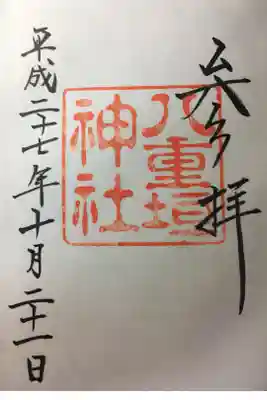 参拝
八重垣
神社
平成二十七年十月二十一日